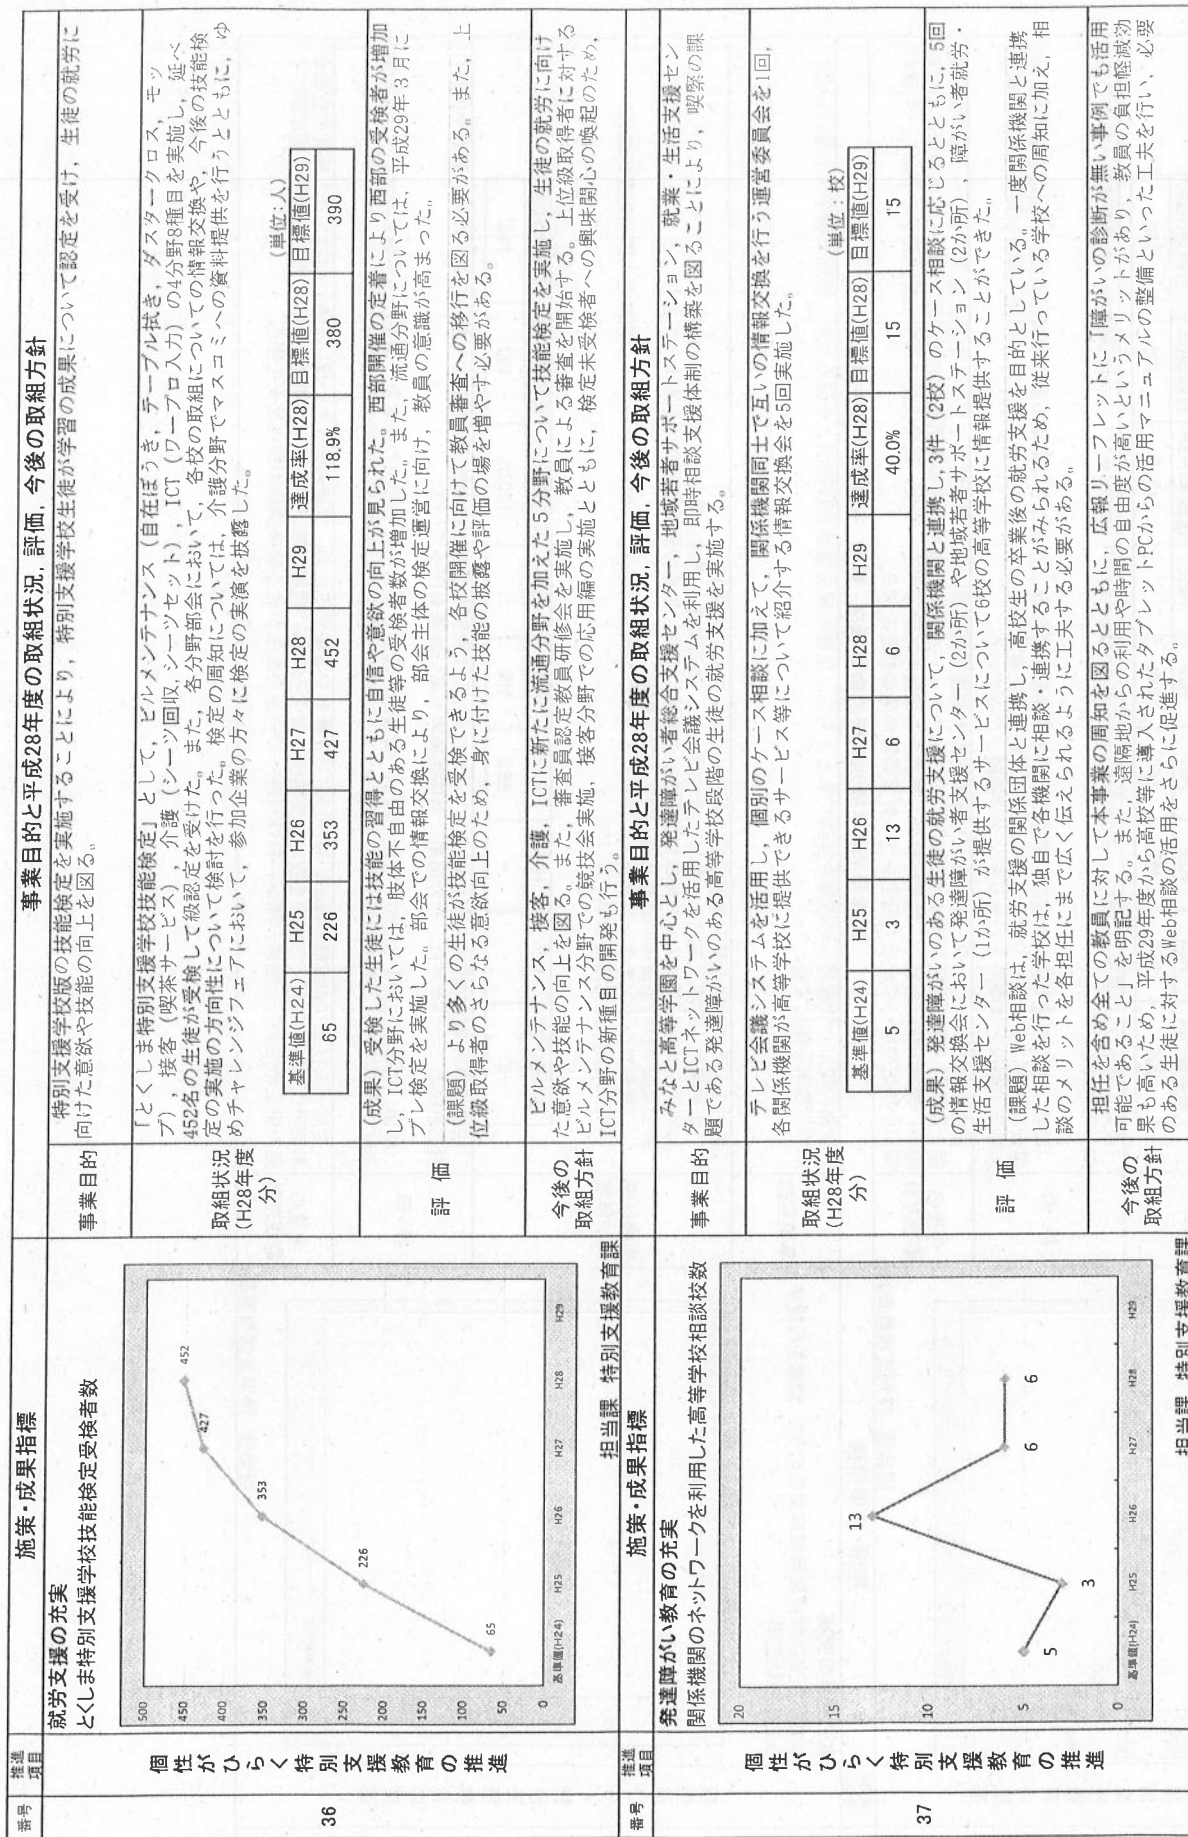 番号
推進項目
施策・成果指標
事業目的と平成28年度の取組状況，評価，今後の取組方針
36
個性がひらく特別支援教育の推進
就労支援の充実
とくしま特別支援学校技能検定受検者数
500
450
400
350
300
250
200
150
100
50
0
65
226
353
427
452
基準値(H24)
H25
H26
H27
H28
H29
担当課 特別支援教育課
事業目的
特別支援学校版の技能検定を実施することにより，特別支援学校生徒が学習の成果について認定を受け，生徒の就労に
向けた意欲や技能の向上を図る。
取組状況
(H28年度
分)
「とくしま特別支援学校技能検定」として，ビルメンテナンス（自在ぼうき，テーブル拭き，ダスタークロス，モッ
プ），接客（喫茶サービス），介護（シーツ回収,シーツセット），ICT（ワープロ入力）の4分野8種目を実施し，延べ
452名の生徒が受検して級認定を受けた。また，各分野部会において，各校の取組についての情報交換や，今後の技能検
定の実施の方向性について検討を行った。検定の周知については，介護分野でマスコミへの資料提供を行うとともに，ゆ
めチャレンジフェアにおいて，参加企業の方々に検定の実演を披露した。
(単位:人)
基準値(H24) H25 H26 H27 H28 H29 達成率(H28) 目標値(H28) 目標値(H29)
65 226 353 427 452 118.9% 380 390
評 価
(成果）受検した生徒には技能の習得とともに自信や意欲の向上が見られた。西部開催の定着により西部の受検者が増加
し，ICT分野においては，肢体不自由のある生徒等の受検者数が増加した。また，流通分野については，平成29年３月に
プレ検定を実施した。部会での情報交換により，部会主体の検定運営に向け，教員の意識が高まった。
(課題）より多くの生徒が技能検定を受検できるよう，各校開催に向けて教員審査への移行を図る必要がある。また，上
位級取得者のさらなる意欲向上のため，身に付けた技能の披露や評価の場を増やす必要がある。
今後の
取組方針
ビルメンテナンス，接客，介護，ICTに新たに流通分野を加えた５分野について技能検定を実施し，生徒の就労に向け
た意欲や技能の向上を図る。また，審査員認定教員研修会を実施し，教員による審査を開始する。上位級取得者に対する
ビルメンテナンス分野での競技会実施，接客分野での応用編の実施とともに，検定未受検者への興味関心の喚起のため，
ICT分野の新種目の開発も行う。
番号
推進項目
施策・成果指標
事業目的と平成28年度の取組状況，評価，今後の取組方針
37
個性がひらく特別支援教育の推進
発達障がい教育の充実
関係機関のネットワークを利用した高等学校相談校数
20
15
10
5
0
5
3
13
6
6
基準値(H24)
H25
H26
H27
H28
H29
担当課 特別支援教育課
事業目的
みなと高等学園を中心とし，発達障がい者総合支援センター，地域若者サポートステーション，就業・生活支援セン
ターとICTネットワークを活用したテレビ会議システムを利用し，即時相談支援体制の構築を図ることにより，喫緊の課
題である発達障がいのある高等学校段階の生徒の就労支援を実施する。
取組状況
(H28年度
分)
テレビ会議システムを活用し，個別のケース相談に加えて，関係機関同士で互いの情報交換を行う運営委員会を1回，
各関係機関が高等学校に提供できるサービス等について紹介する情報交換会を5回実施した。
(単位：校)
基準値(H24) H25 H26 H27 H28 H29 達成率(H28) 目標値(H28) 目標値(H29)
5 3 13 6 6 40.0% 15 15
評 価
(成果）発達障がいのある生徒の就労支援について，関係機関と連携し,3件（2校）のケース相談に応じるとともに，5回
の情報交換会において発達障がい者支援センター（2か所）や地域若者サポートステーション（2か所），障がい者就労・
生活支援センター（1か所）が提供するサービスについて6校の高等学校に情報提供することができた。
(課題）Web相談は，就労支援の関係団体と連携し，高校生の卒業後の就労支援を目的としている。一度関係機関と連携
した相談を行った学校は，独自で各機関に相談・連携することがみられるため，従来行っている学校への周知に加え，相
談のメリットを各担任にまで広く伝えられるように工夫する必要がある。
今後の
取組方針
担任を含め全ての教員に対して本事業の周知を図るとともに，広報リーフレットに「障がいの診断が無い事例でも活用
可能であること」を明記する。また，遠隔地からの利用や時間の自由度が高いというメリットがあり，教員の負担軽減効
果も高いため，平成29年度から高校等に導入されたタブレットPCからの活用マニュアルの整備といった工夫を行い，必要
のある生徒に対するWeb相談の活用をさらに促進する。